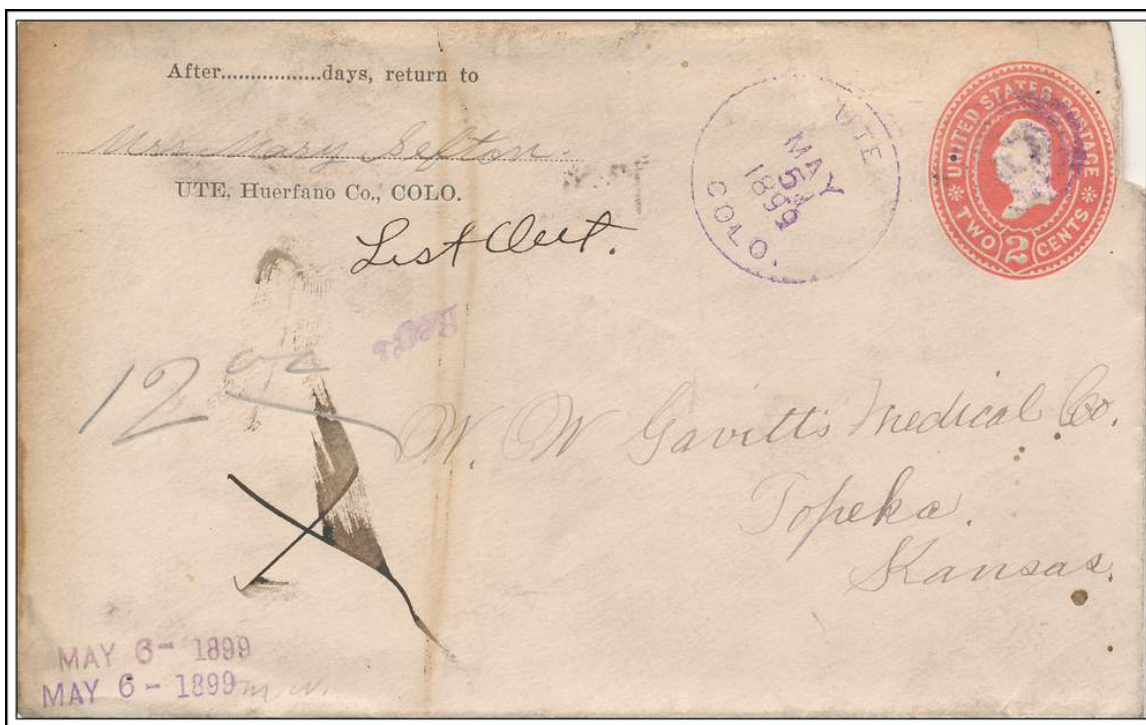 After.................days, return to
Mrs Mary Sefton.
UTE, Huerfano Co., COLO.
UTE
MAY
5
1899
COLO.
UNITED STATES POSTAGE
TWO 2 CENTS
List Out.
12
W. W Gavitt's Medical Co.
Topeka.
Kansas.
MAY 6- 1899
MAY 6- 1899
m.w.